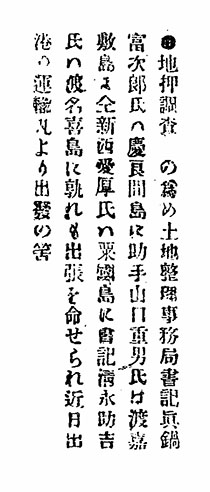 ●地押調査　の爲め土地整理事務局書記眞鍋
富次郎氏ハ慶良間島に助手山口重男氏は渡嘉
敷島に仝新西愛厚氏ハ粟國島に書記淸永助吉
氏ハ渡名喜島に孰れも出張を命せられ近日出
港の運輸丸より出發の筈